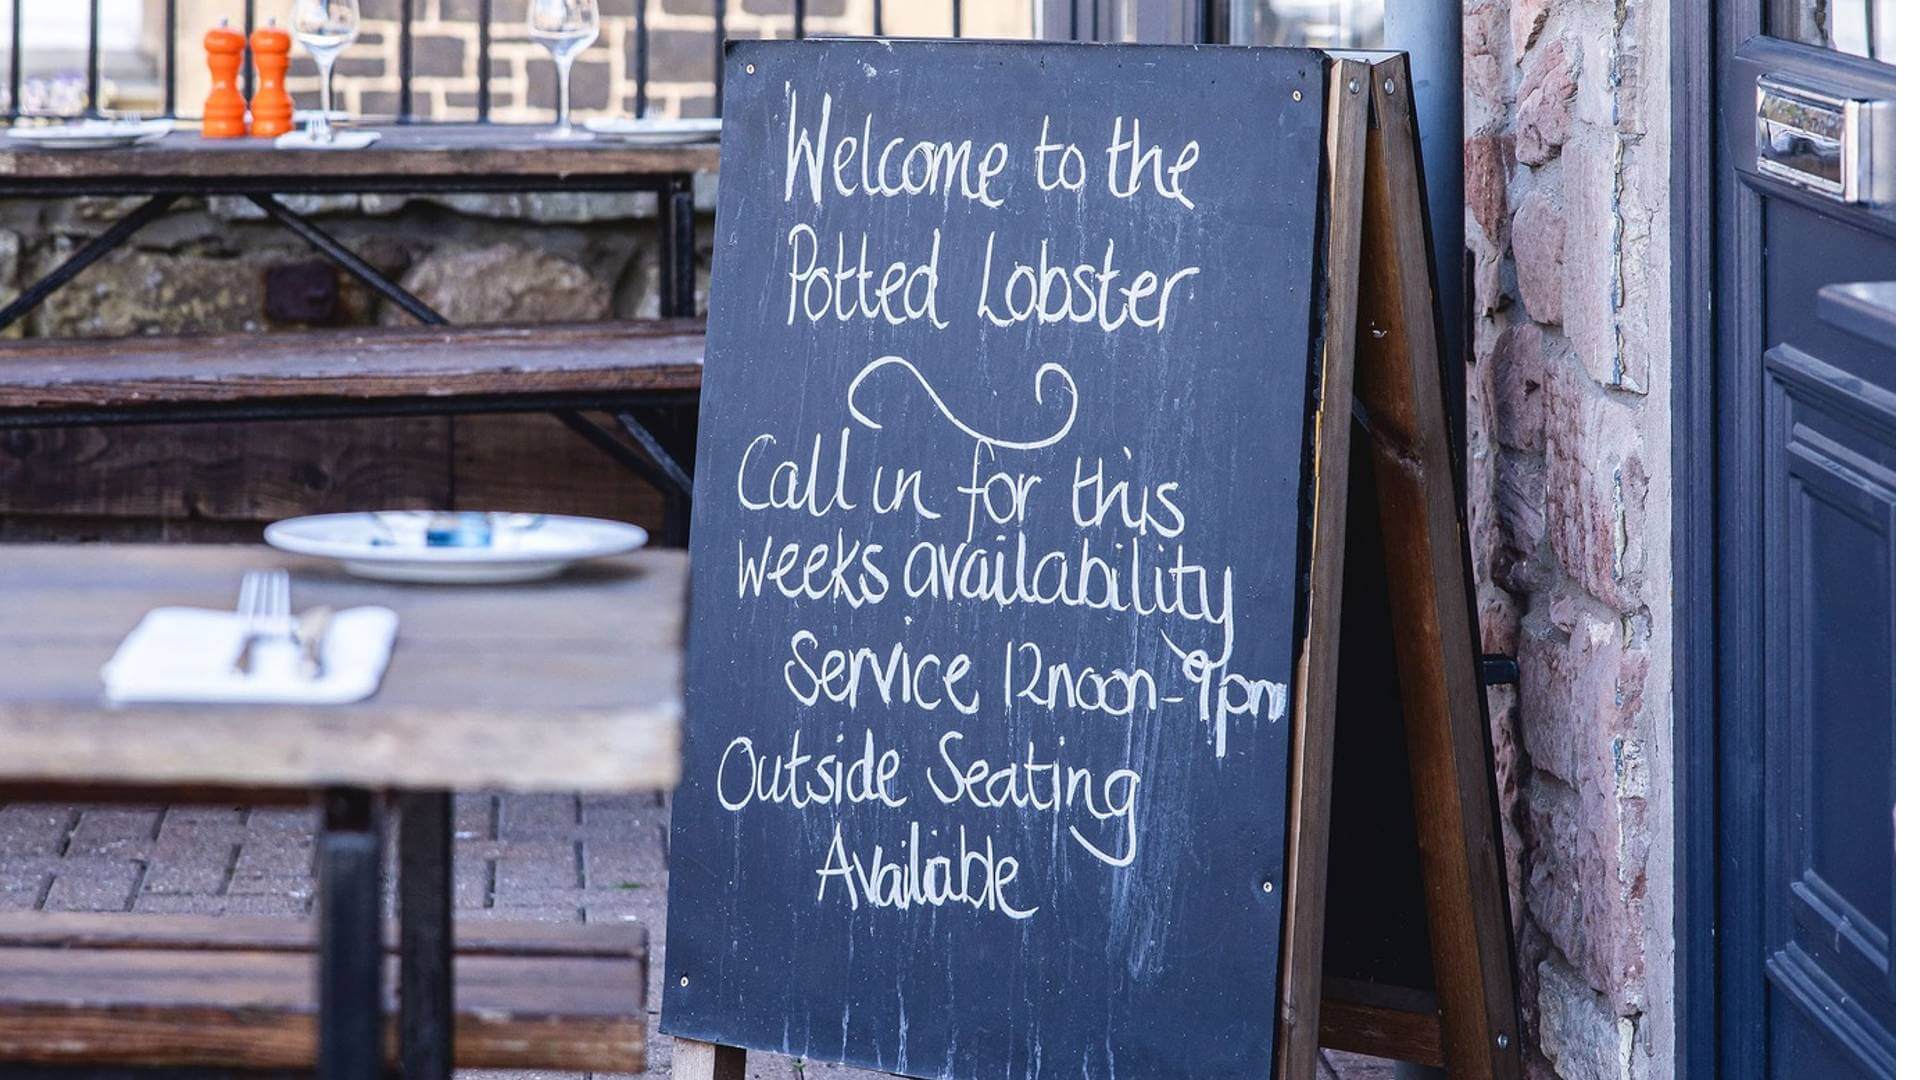 Welcome to the
Potted Lobster
Call in for this
weeks availability
Service 12noon-9pm
Outside Seating
Available